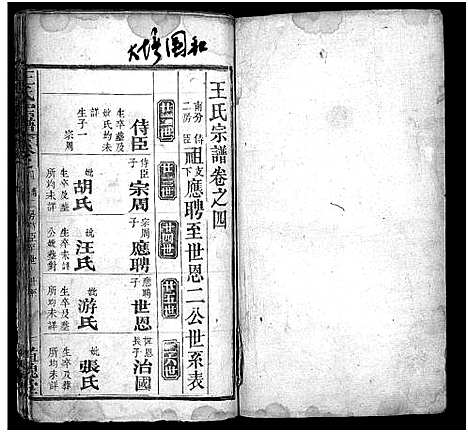 大塆国和
王氏宗譜卷之四
南分二房侍臣祖支下應聘至世恩二公世系表
廿二世
廿三世
廿四世
廿五世
二六世
侍臣
生卒葬及妣氏均未詳
生子一
宗周
侍臣子
宗周
妣
胡氏
生卒及葬所均未詳
宗周子
應聘
妣
汪氏
生卒未詳
公妣葬對
應聘子
世恩
妣
游氏
生卒及葬所均未詳
世恩長子
治國
妣
張氏
生卒及葬所均未詳
王氏宗譜